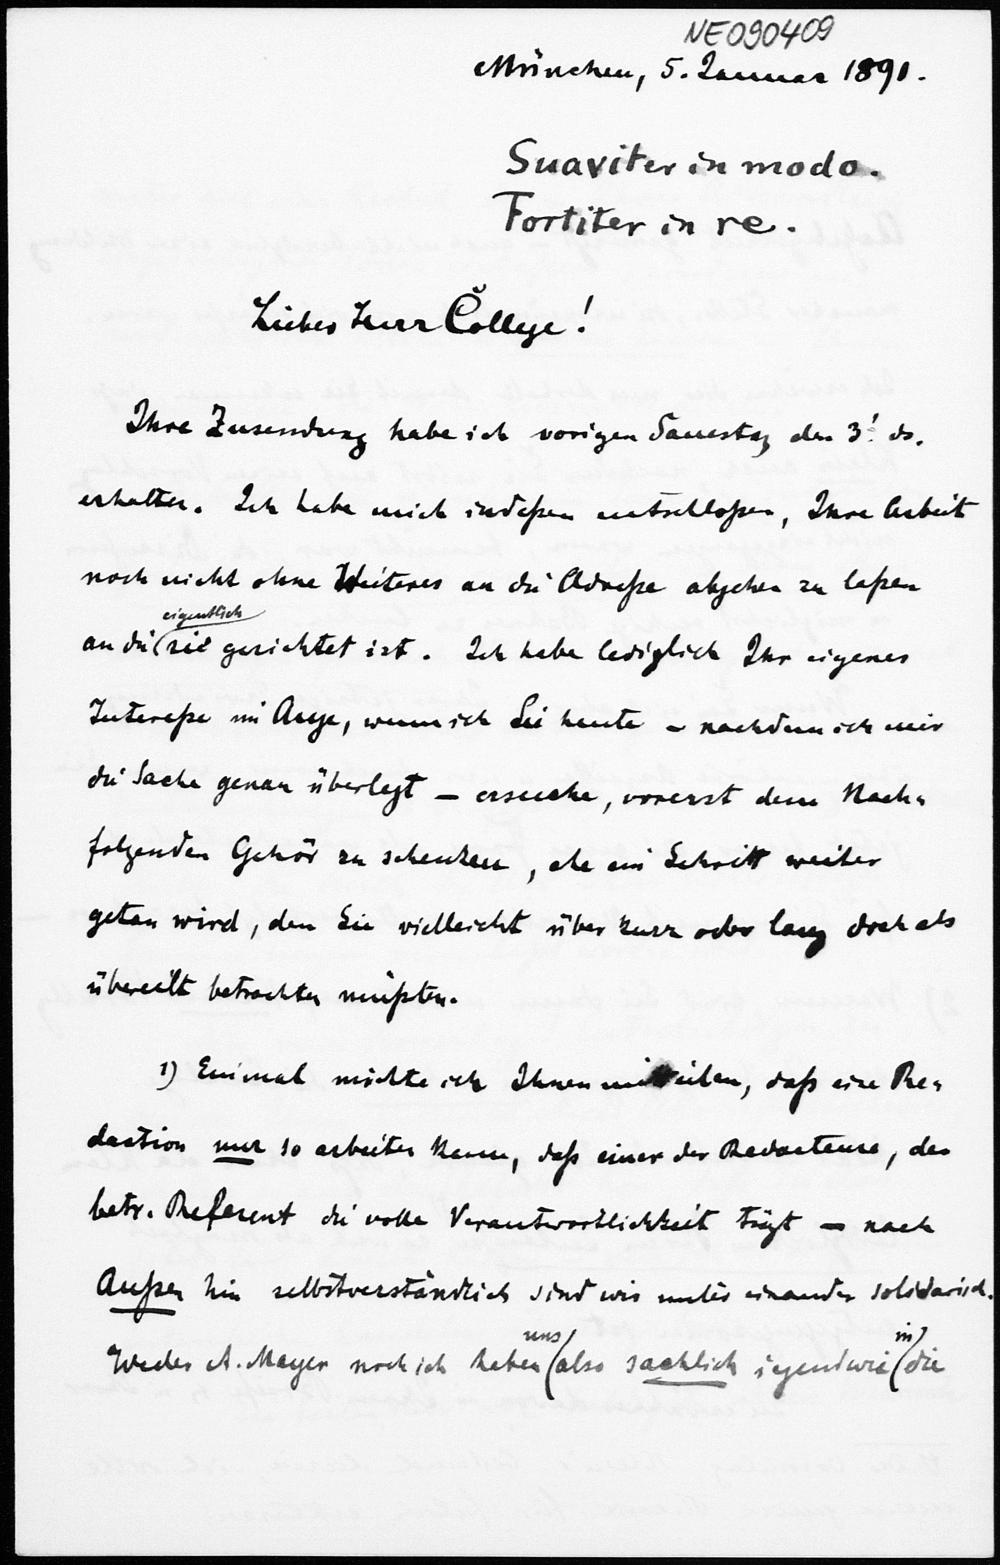 NE090409
München, 5. Januar 1891.
Suaviter in modo.
Fortiter in re.
Lieber Herr College!
Ihre Zusendung habe ich vorigen Samstag den 3! ds.
erhalten. Ich habe mich indeßen entschloßen, Ihre Arbeit
noch nicht ohne Weiteres an die Adreße abgehen zu laßen
eigentlich
an die sie gerichtet ist. Ich habe lediglich Ihr eigenes
Intereße im Auge, wenn ich Sie heute – nachdem ich mir
die Sache genau überlegt – ersuche, vorerst dem Nach-
folgenden Gehör zu schenken, ehe ein Schritt weiter
getan wird, den Sie vielleicht über kurz oder lang doch als
übereilt betrachten müßten.
1) Einmal möchte ich Ihnen mitteilen, daß eine Re-
daction nur so arbeiten kann, daß einer der Redacteure, der
betr. Referent die volle Verantwortlichkeit trägt – nach
Außen hin selbstverständlich sind wir unter einander solidarisch.
uns in
Weder A. Mayer noch ich haben also sachlich irgendwie die